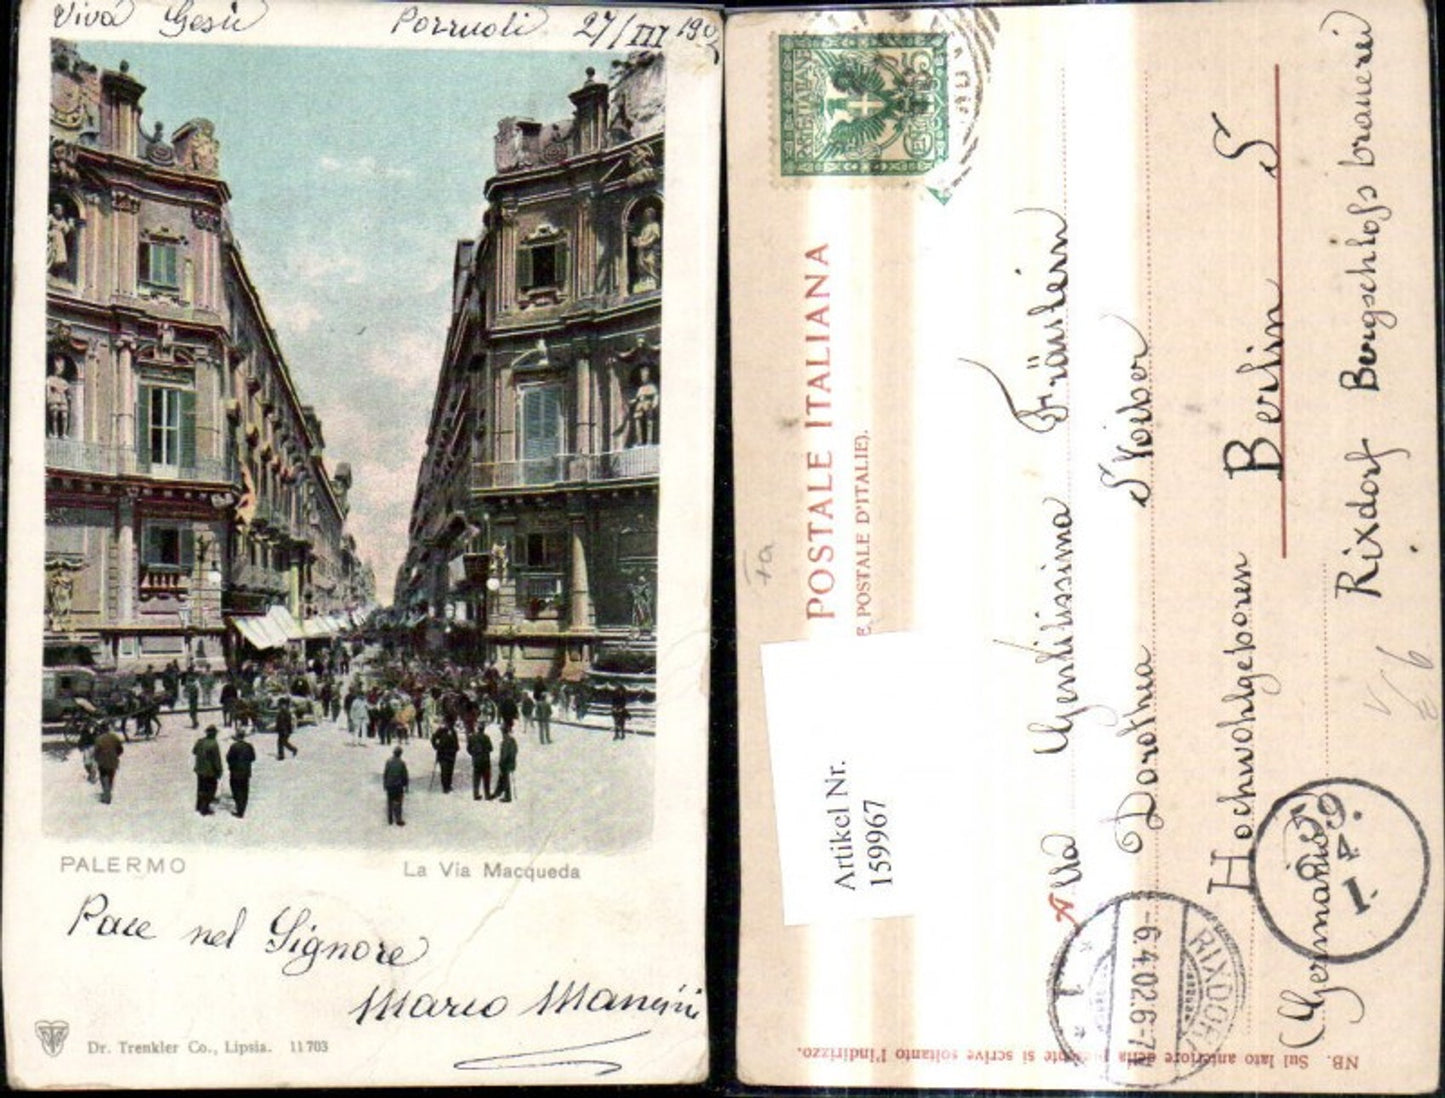 Viva Gesù Pozzuoli 27/III 190
PALERMO
La Via Macqueda
Pace nel Signore
Mario Mancini
Dr. Trenkler Co., Lipsia. 11703
POSTALE ITALIANA
E POSTALE D'ITALIE).
Alla Gentilissima Fräulein
Dorothea
Hochwohlgeboren Berlin S
Rixdorf Bergschloss brauerei
(Germania)
Artikel Nr.
159967
RIXDORF
-6.4.02.6-7
59.
4
I.
NB. Sul lato anteriore della presente si scrive soltanto l'indirizzo.